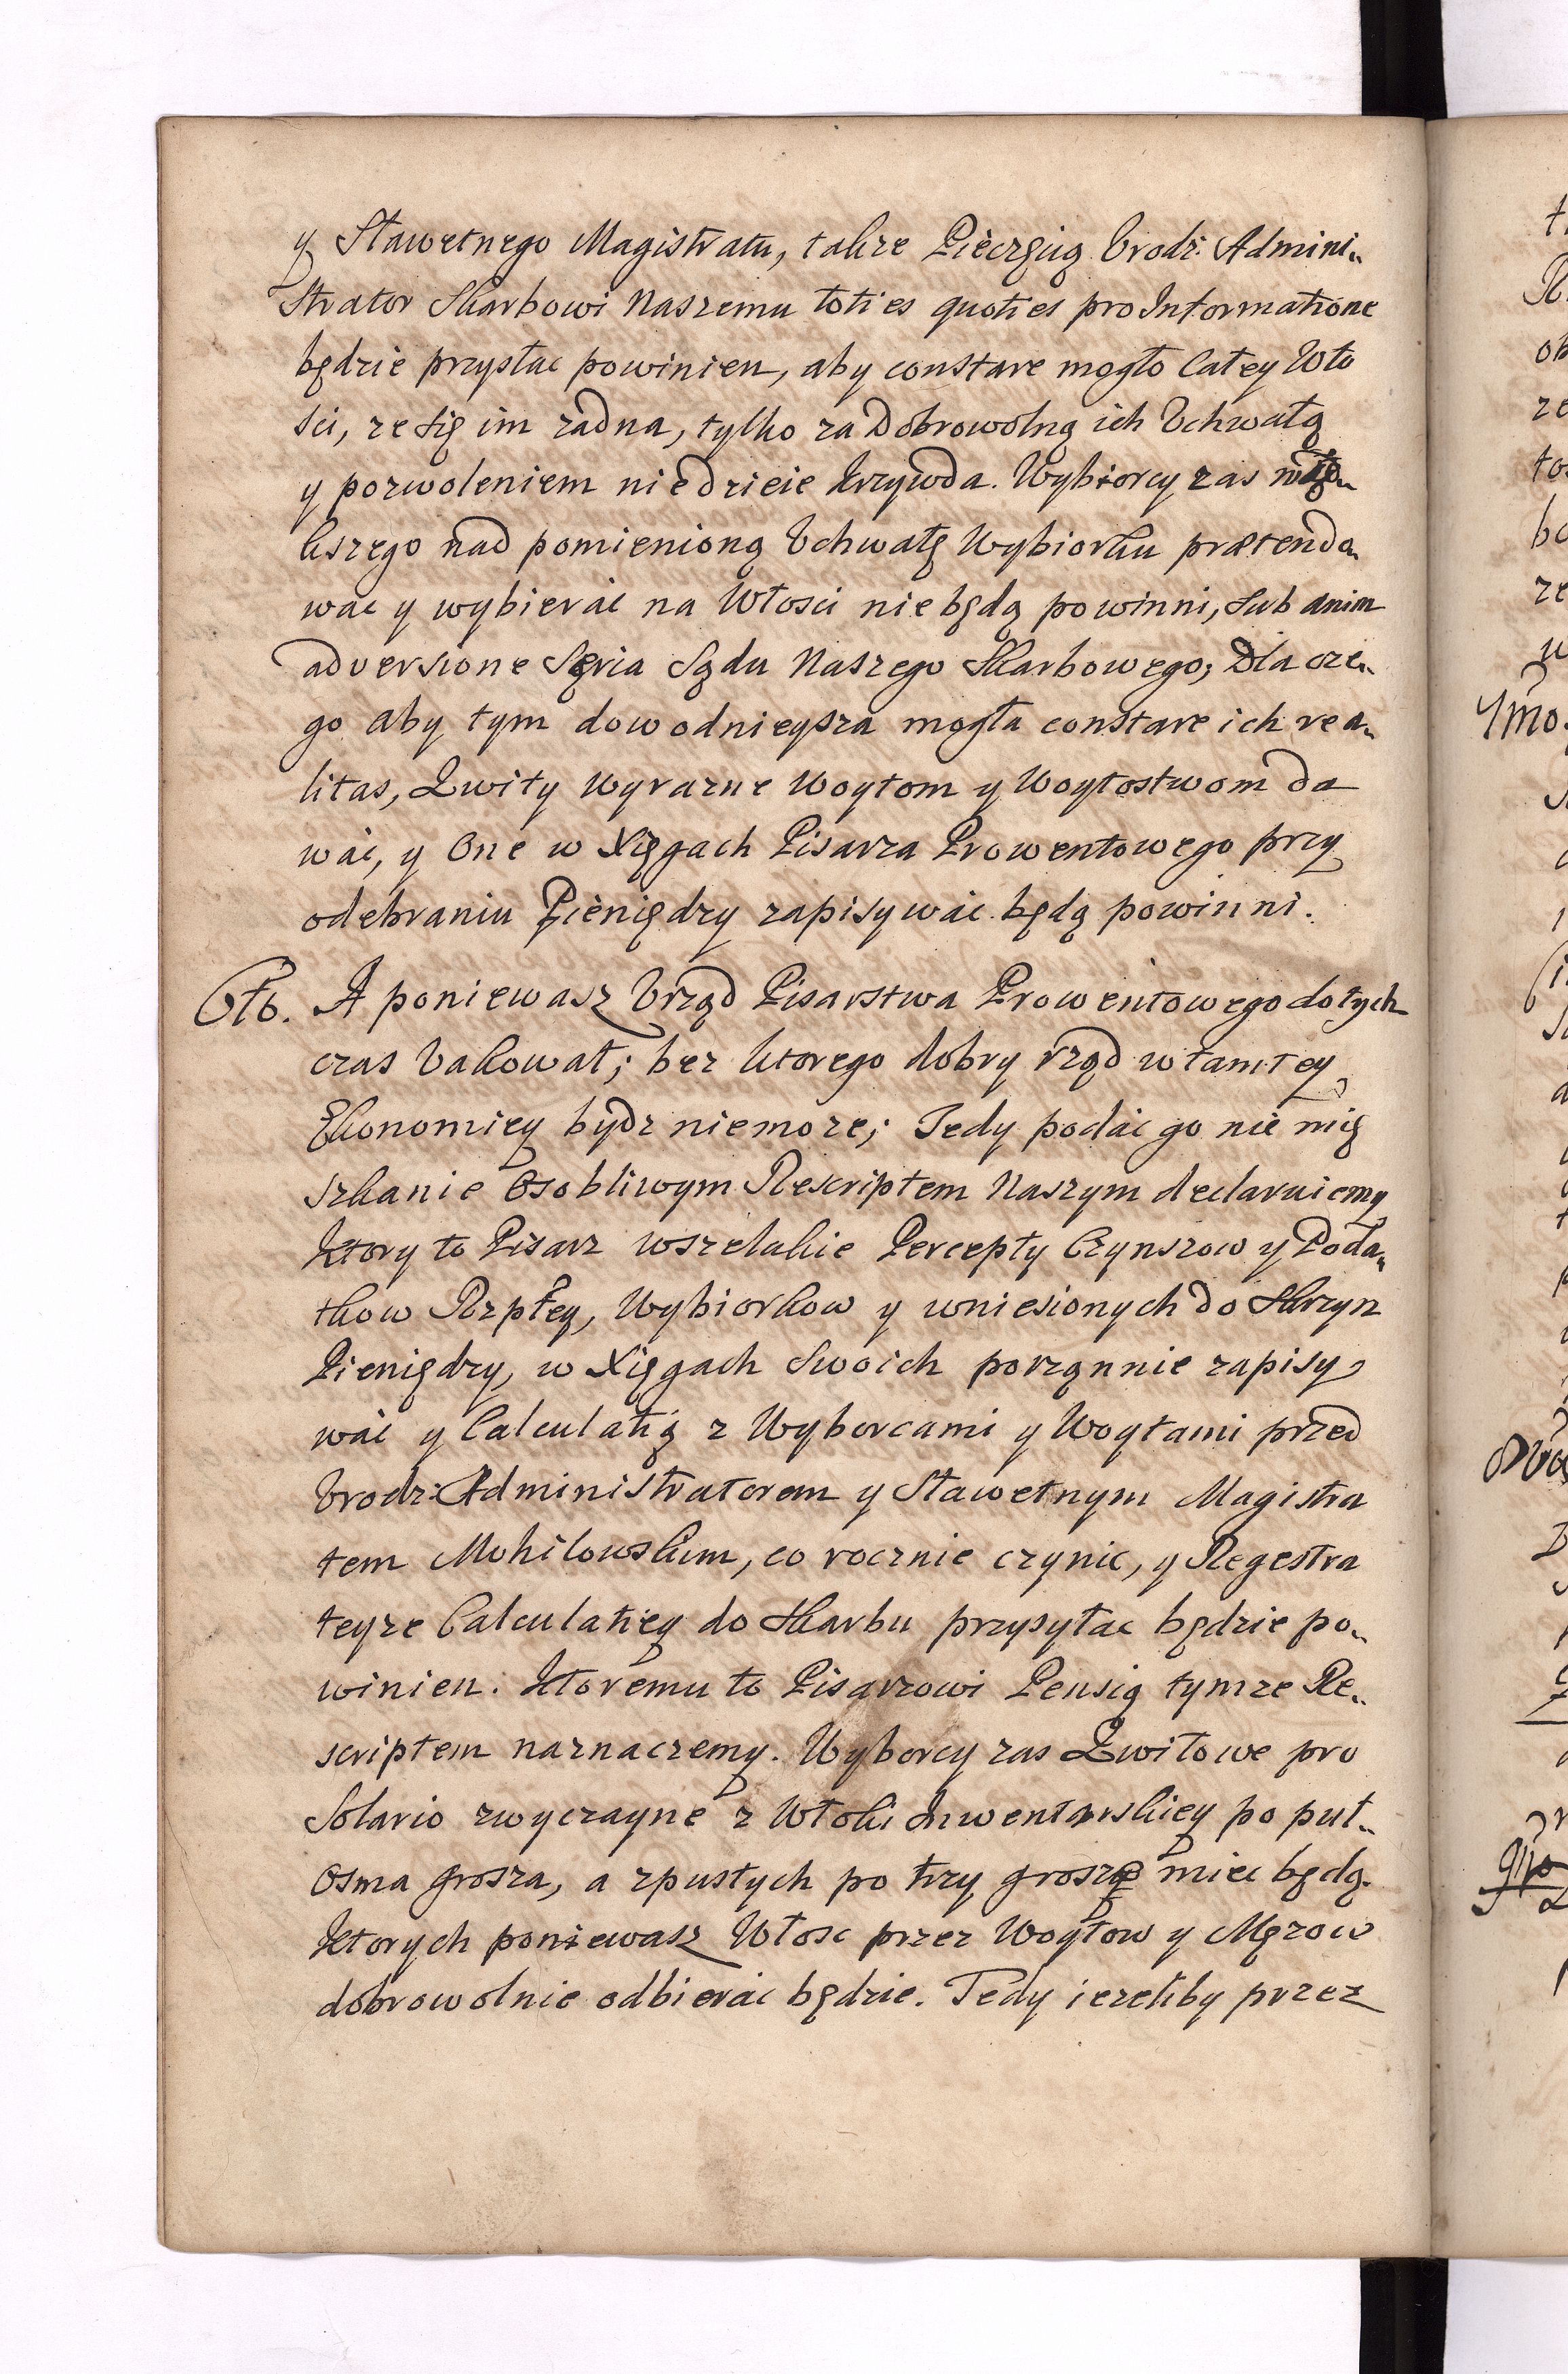 y Sławetnego Magistratu, takze Pieczęią Vrodz: Admini„
strator Skarbowi Naszemu toties quoties pro Informatione
będzie przysłac powinien, aby constare mogło Całey Wło
sci, ze się im zadna, tylko za Dobrowolną ich Vchwałą
y pozwoleniem nie dzieie krzywda. Wybiorcy zas
kszego nad pomienioną Vchwałę Wybiorku prætendo„
wac y wybierać na Włosci nie będą powinni, sub anim
adversione Seria Sądu Naszego Skarbowego; Dla cze„
go aby tym dowodnieysza mogła constare ich rea„
litas, Kwity Wyrazne Woytom y Woytostwom da
wać, y One w Xięgach Pisarza Prowentowego przy
odebraniu Pieniędzy zapisywać będą powinni.
6to. A poniewasz Vrząd Pisarstwa Prowentowego do tych
czas Vakował; bez ktorego dobry rząd w tamtey
Ekonomiey bydz niemoze; Tedy podać go nie mię
szkanie Osobliwym Rescriptem Naszym declaruiemy
Ktory to Pisarz wszelakie Percepty Czynszow y Poda„
tkow Rzpłey, Wybiorkow y wniesionych do Skrzyn
Pieniędzy, w Xięgach Swoich porząnnie zapisy
wać y Calculatią z Wyborcami y Woytami przed
Vrodz: Administratorem y Sławetnym Magistra
tem Mohilowskim, co rocznie czynic, y Regestra
teyze Calculatiey do Skarbu przysyłac będzie po„
winien. Ktoremu to Pisarzowi Pensią tymze Re„
scriptem naznaczemy. Wyborcy zas Kwitowe pro
Solario zwyczayne z Włoki Inwentarskiey po puł„
osma grosza, a zpustych po trzy grosze miec będą.
Ktorych poniewasz Włosc przez Woytow y Męzow
dobrowolnie odbierać będzie. Tedy iezeliby przez